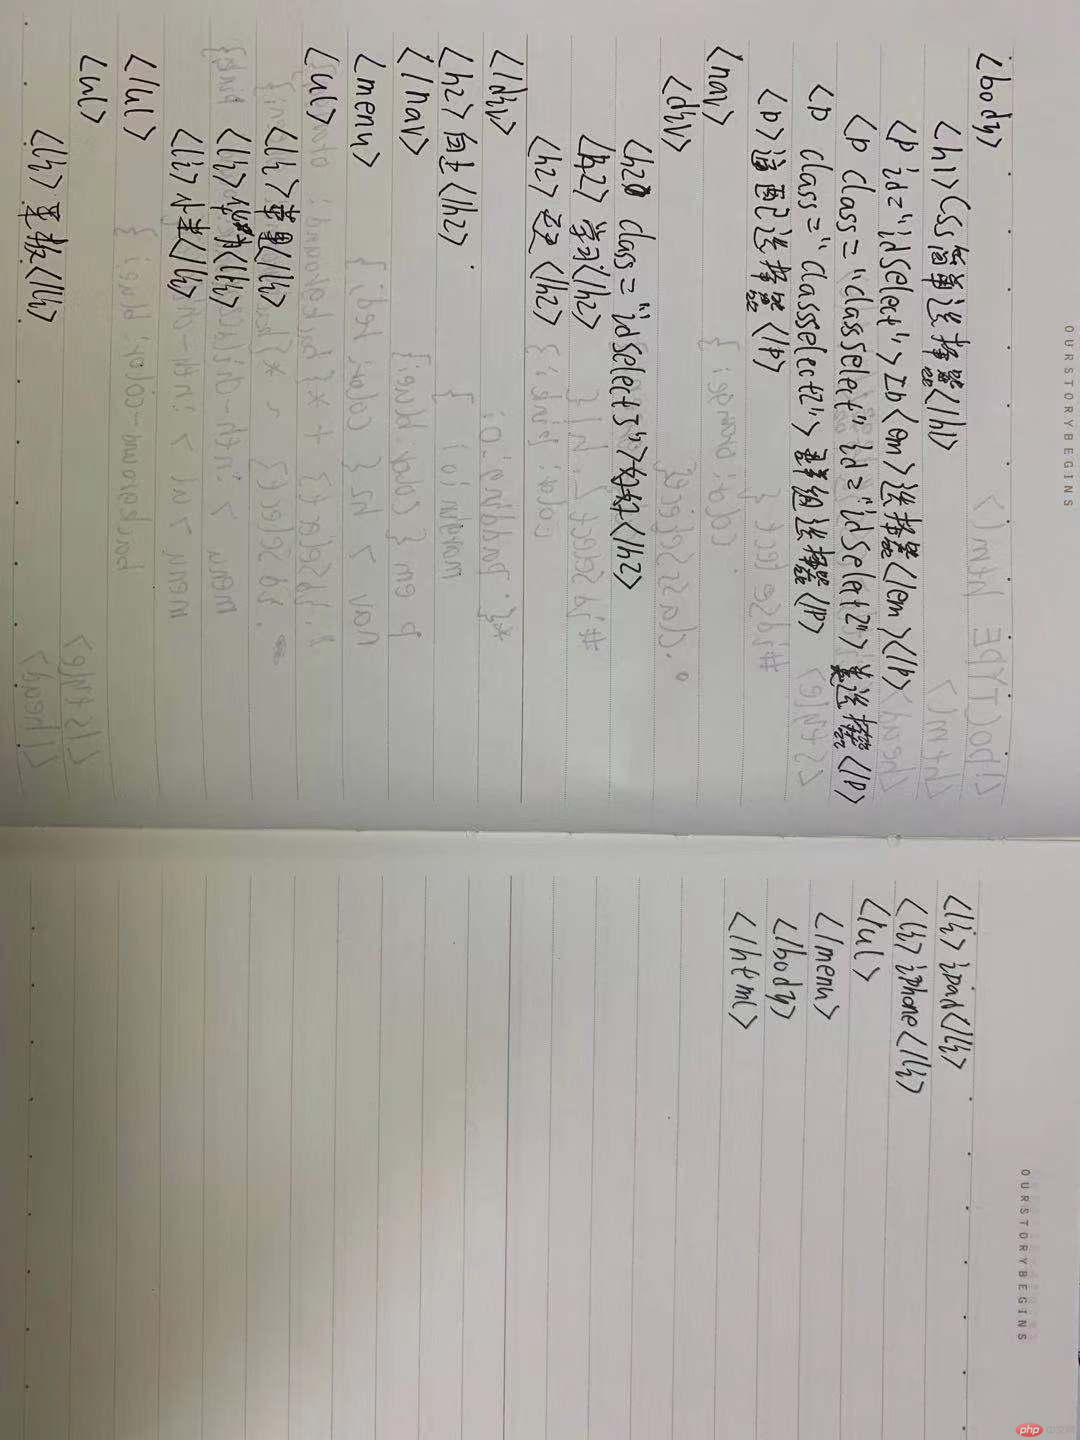 OURSTORYBEGINS
<body>
<h1>CSS简单选择器</h1>
<p id="idselect">Id<em>选择器</em></p>
<p class="classselect" id="idselect2">类选择器</p>
<p class="classselect2">群组选择器</p>
<p>通配选择器</p>
<nav>
<div>
<h2 class="idselect3">好好</h2>
<h2>学习</h2>
<h2>天天</h2>
</div>
<h2>向上</h2>
</nav>
<menu>
<ul>
<li>苹果</li>
<li>华为</li>
<li>小米</li>
</ul>
<ul>
<li>平板</li>
OURSTORYBEGINS
<li>ipad</li>
<li>iphone</li>
</ul>
</menu>
</body>
</html>
php